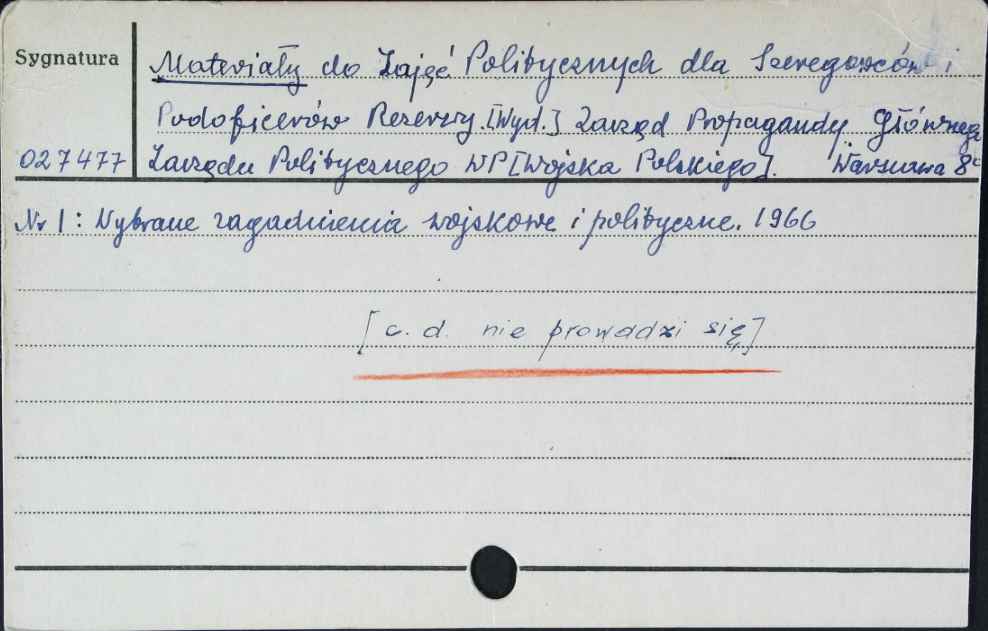 Sygnatura
Materiały do Zajęć Politycznych dla Szeregowców i
Podoficerów Rezerwy. [Wyd.] Zarząd Propagandy Głównego
027477 Zarządu Politycznego WP [Wojska Polskiego]. Warszawa 8°
Nr 1: Wybrane zagadnienia wojskowe i polityczne. 1966
[c. d. nie prowadzi się]